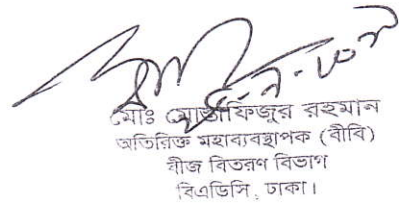 মোঃ মোস্তাফিজুর রহমান
অতিরিক্ত মহাব্যবস্থাপক (বীবি)
বীজ বিতরণ বিভাগ
বিএডিসি, ঢাকা।